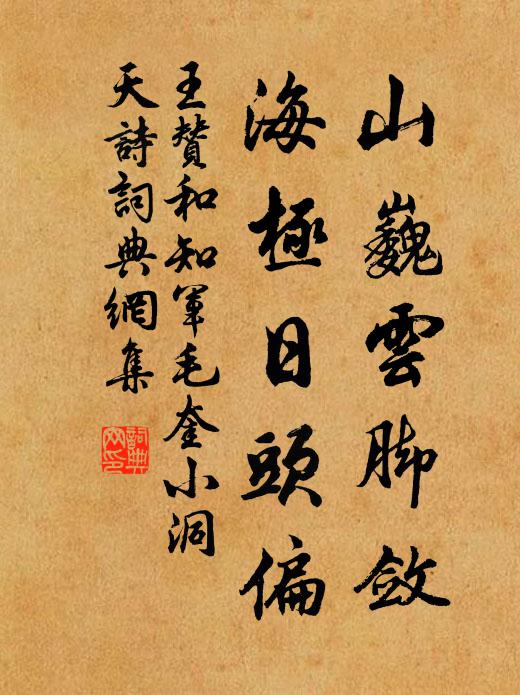 山巍雲脚斂
海極日頭偏
王贊和知軍毛奎小洞
天詩詞典網集
詞典网印